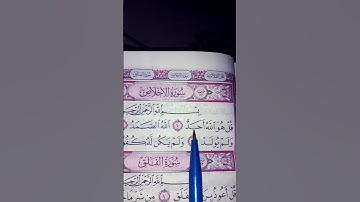 سُورَةُ الإِخْلَاصِ
بِسْمِ اللَّهِ الرَّحْمَٰنِ الرَّحِيمِ
قُلْ هُوَ اللَّهُ أَحَدٌ ١ اللَّهُ الصَّمَدُ
وَلَمْ يُولَدْ وَلَمْ يَكُن لَّهُ كُفُوًا
سُورَةُ الفَلَقِ
بِسْمِ اللَّهِ الرَّحْمَٰنِ الرَّحِيمِ
قُلْ أَعُوذُ بِرَبِّ الْفَلَقِ ١ مِن شَرِّ مَا